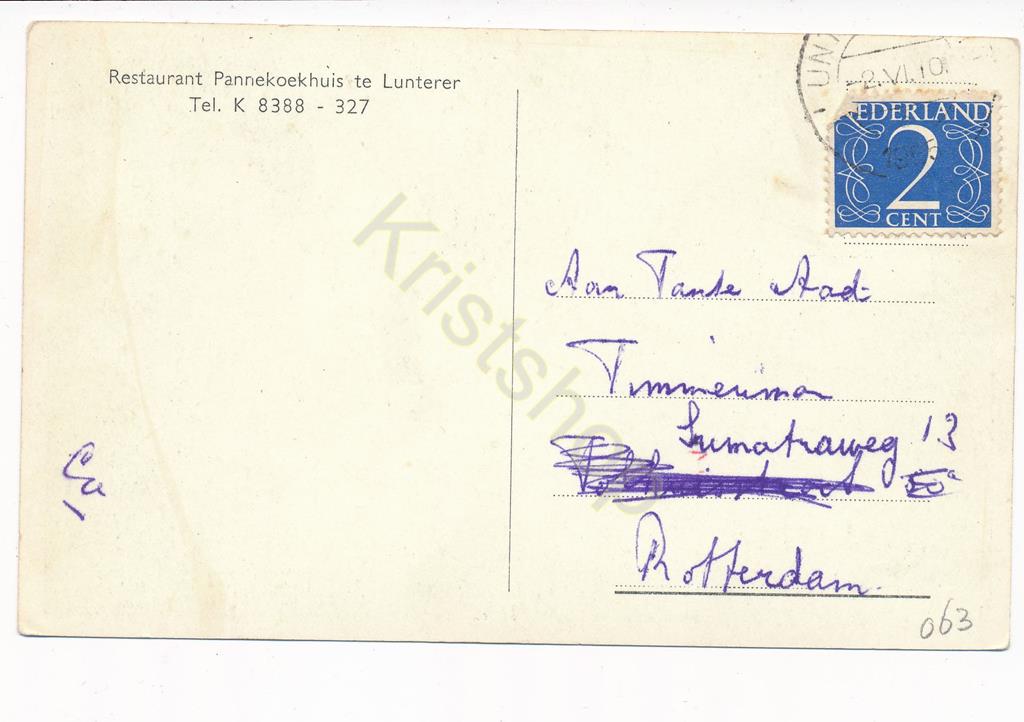 Restaurant Pannekoekhuis te Lunterer
Tel. K 8388 - 327
LUNT
-2.VI.10
NEDERLAND
2
CENT
Kristshop
Aan Tante Aad
Timmerman
Sumatraweg 13
50a
Rotterdam
063